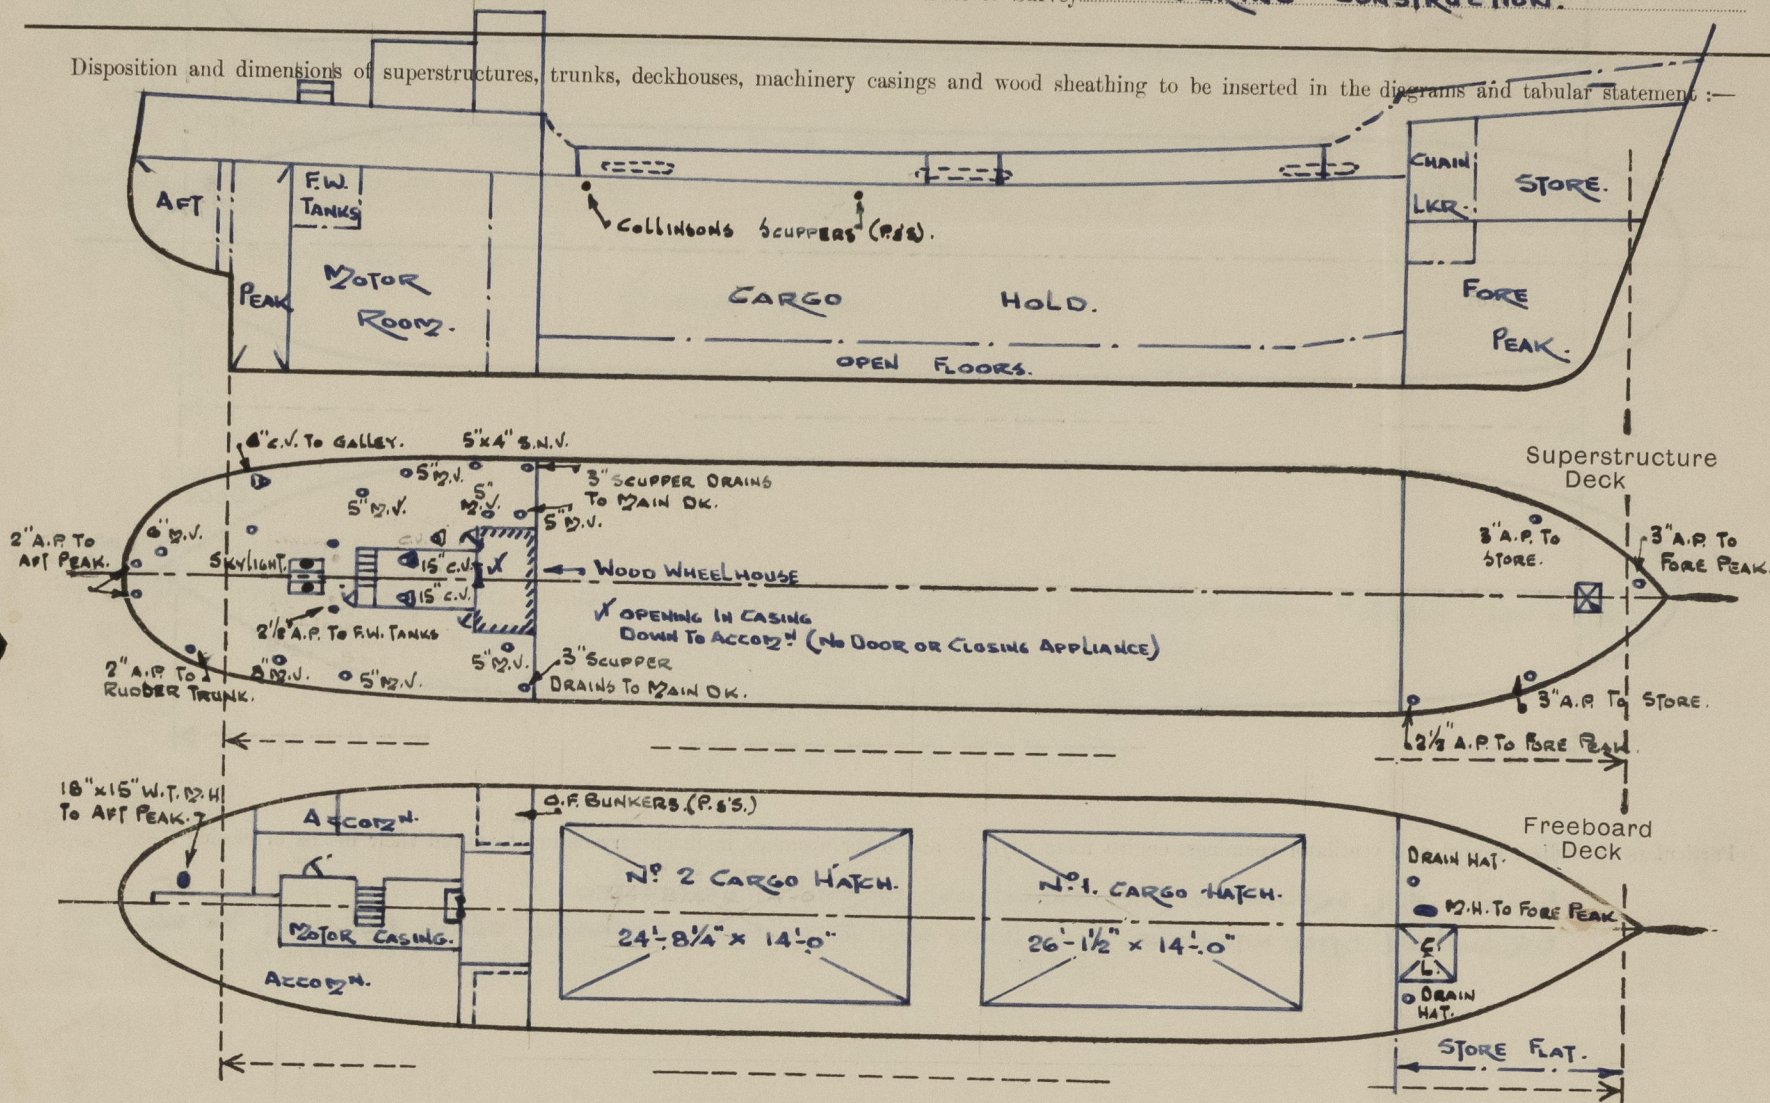 Survey
CONSTRUCTION.
Disposition and dimensions of superstructures, trunks, deckhouses, machinery casings and wood sheathing to be inserted in the diagrams and tabular statement :—
AFT
PEAK
F.W.
TANKS
MOTOR
ROOM.
COLLINSONS SCUPPERS (P.&S).
CARGO HOLD.
OPEN FLOORS.
CHAIN
LKR.
STORE.
FORE
PEAK.
Superstructure
Deck
6" C.V. TO GALLEY.
5"x4" S.N.V.
5" M.V.
5" M.V.
5"
M.V.
3" SCUPPER DRAINS
TO MAIN DK.
5" M.V.
2" A.P. TO
AFT PEAK.
6" M.V.
SKYLIGHT.
C.V.
15" C.V.
15" C.V.
X
WOOD WHEELHOUSE
X OPENING IN CASING
DOWN TO ACCOMN (NO DOOR OR CLOSING APPLIANCE)
2½" A.P. TO F.W. TANKS
2" A.P. TO
RUDDER TRUNK.
5" M.V.
5" M.V.
5" M.V.
3" SCUPPER
DRAINS TO MAIN DK.
3" A.P. TO
STORE.
3" A.P. TO
FORE PEAK.
3" A.P. TO STORE.
2½" A.P. TO FORE PEAK.
Freeboard
Deck
18"x15" W.T. M.H
TO AFT PEAK.
ACCOMN.
O.F. BUNKERS. (P.&S.)
MOTOR CASING.
ACCOMN.
No 2 CARGO HATCH.
24'-8¼" x 14'-0"
No 1. CARGO HATCH.
26'-1½" x 14'-0"
DRAIN HAT.
M.H. TO FORE PEAK
C.
L.
DRAIN
HAT.
STORE FLAT.